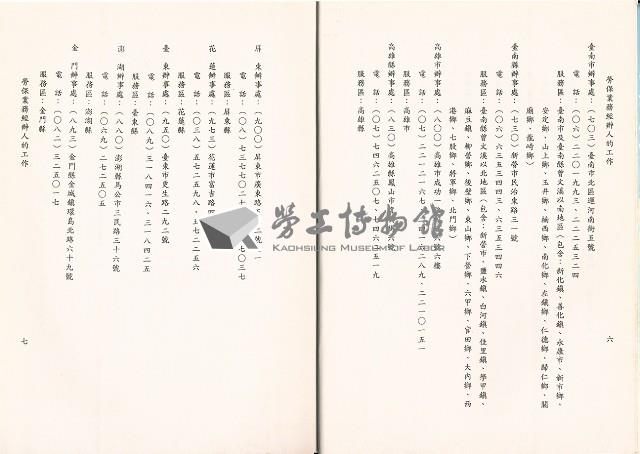 勞保業務經辦人的工作
六
臺南市辦事處：(七〇三)臺南市北區運河南街五號
電話：(〇六)二二〇一九九三、二二二五三二四
服務區：臺南市及臺南縣曾文溪以南地區(包含：新化鎮、善化鎮、永康市、新市鄉、
安定鄉、山上鄉、玉井鄉、楠西鄉、南化鄉、左鎮鄉、仁德鄉、歸仁鄉、關
廟鄉、龍崎鄉)
臺南縣辦事處：(七三〇)新營市民治東路三一號
電話：(〇六)六三五三四四三、六三五三四四六
服務區：臺南縣曾文溪以北地區(包含：新營市、鹽水鎮、白河鎮、佳里鎮、學甲鎮、
麻豆鎮、柳營鄉、後壁鄉、東山鄉、下營鄉、六甲鄉、官田鄉、大內鄉、西
港鄉、七股鄉、將軍鄉、北門鄉)
高雄市辦事處：(八〇〇)高雄市成功一路
號六樓
電話：(〇七)
二八九、二二一〇一五一
服務區：高雄市
高雄縣辦事處：(八三〇)高雄縣鳳山市
號
電話：(〇七)七四六二五〇
七七四六二五一九
服務區：高雄縣
屏東辦事處：(九〇〇)屏東市廣東路
電話：(〇八)七三七七〇二
七〇三七
服務區：屏東縣
花蓮辦事處：(九七三)花蓮市富吉路
電話：(〇三八)五七二
五七二二五六
服務區：花蓮縣
臺東辦事處：(九五〇)臺東市更生路二九二號
電話：(〇八九)三一八四一六、三一八四二五
服務區：臺東縣
澎湖辦事處：(八八〇)澎湖縣馬公市三民路三十六號
電話：(〇六九)二七二二五〇五
服務區：澎湖縣
金門辦事處：(八九三)金門縣金城鎮環島北路六十九號
電話：(〇八二)三二五〇一七
服務區：金門縣
勞保業務經辦人的工作
七
勞工博物館
KAOHSIUNG MUSEUM OF LABOR